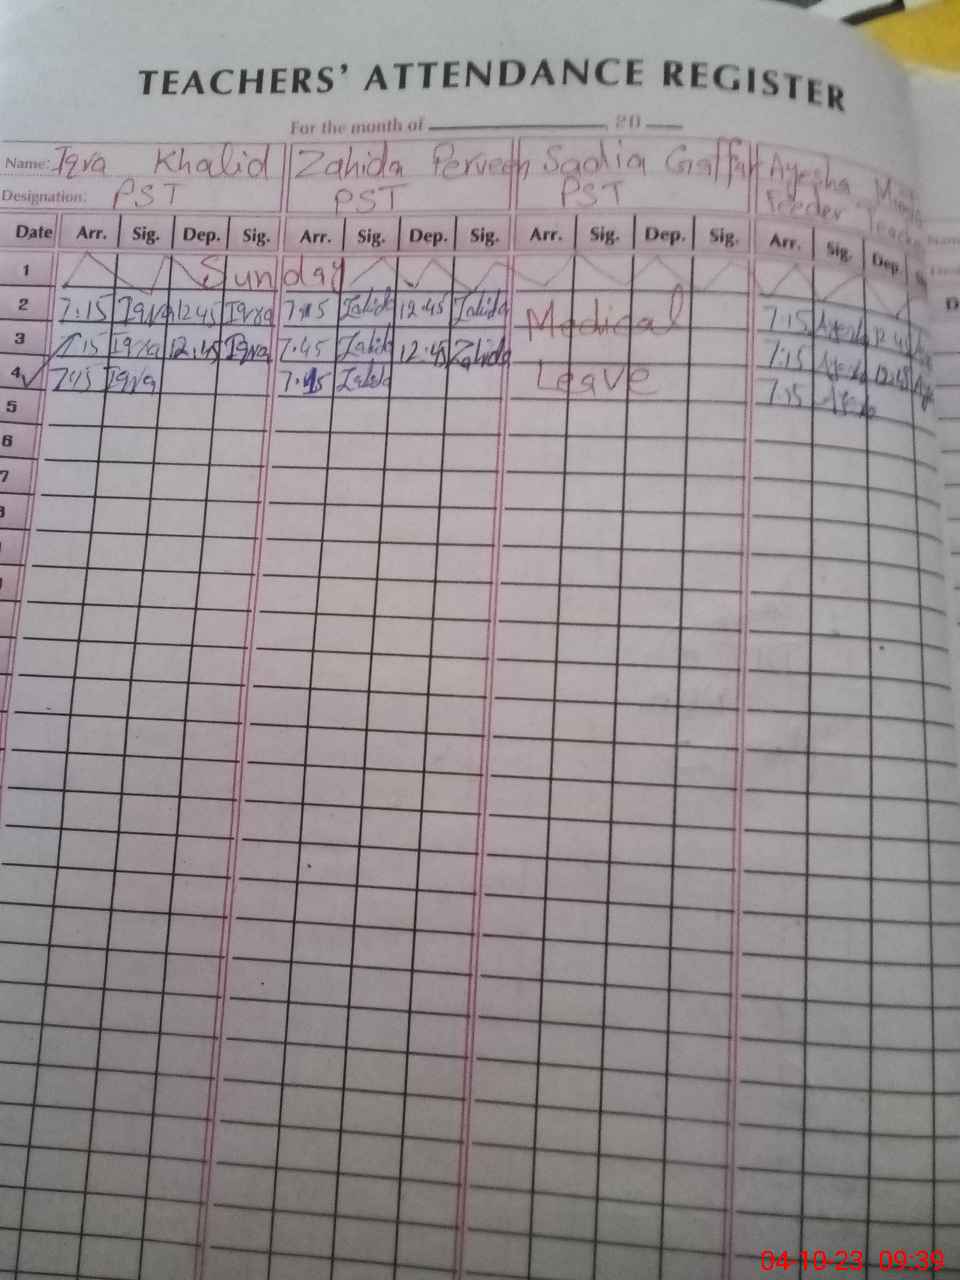 TEACHERS' ATTENDANCE REGISTER
For the month of 20
Name: Iqra Khalid Zahida Perveen Sadia Gaffar Ayesha
Designation: PST PST PST Feeder Teacher
Date Arr. Sig. Dep. Sig. Arr. Sig. Dep. Sig. Arr. Sig. Dep. Sig. Arr. Sig. Dep.
1 Sunday
2 7:15 Iqra 12:45 Iqra Zahida 12:45 Zahida Medical 7:15 Ayesha 12:45
3 7:15 Iqra 12:45 Iqra 7:45 Zahida 12:45 Zahida 7:15 Ayesha 12:45
4 7:15 Iqra Zahida Leave 7:15 Ayesha
5
6
7
04-10-23 09:39